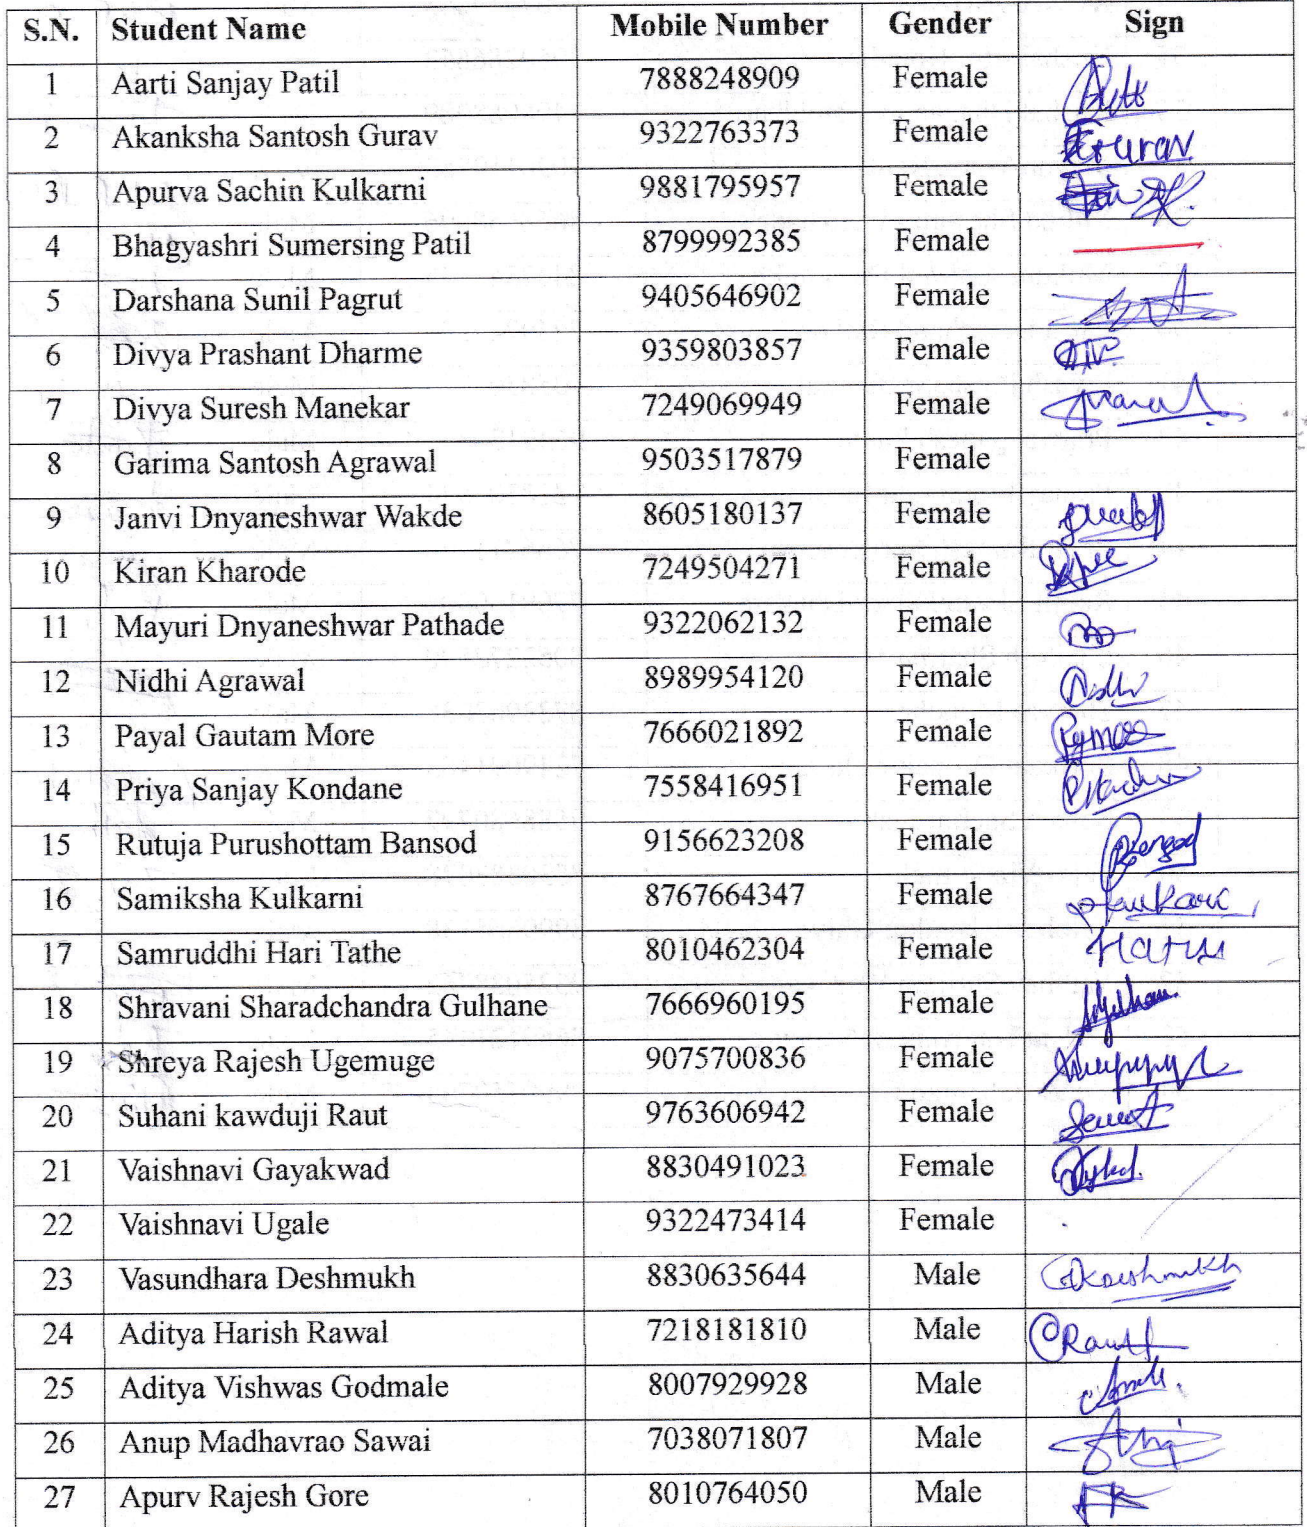 S.N. Student Name Mobile Number Gender Sign
1 Aarti Sanjay Patil 7888248909 Female
2 Akanksha Santosh Gurav 9322763373 Female Gurav
3 Apurva Sachin Kulkarni 9881795957 Female
4 Bhagyashri Sumersing Patil 8799992385 Female
5 Darshana Sunil Pagrut 9405646902 Female
6 Divya Prashant Dharme 9359803857 Female
7 Divya Suresh Manekar 7249069949 Female
8 Garima Santosh Agrawal 9503517879 Female
9 Janvi Dnyaneshwar Wakde 8605180137 Female
10 Kiran Kharode 7249504271 Female
11 Mayuri Dnyaneshwar Pathade 9322062132 Female
12 Nidhi Agrawal 8989954120 Female
13 Payal Gautam More 7666021892 Female
14 Priya Sanjay Kondane 7558416951 Female
15 Rutuja Purushottam Bansod 9156623208 Female
16 Samiksha Kulkarni 8767664347 Female
17 Samruddhi Hari Tathe 8010462304 Female
18 Shravani Sharadchandra Gulhane 7666960195 Female
19 Shreya Rajesh Ugemuge 9075700836 Female
20 Suhani kawduji Raut 9763606942 Female
21 Vaishnavi Gayakwad 8830491023 Female
22 Vaishnavi Ugale 9322473414 Female
23 Vasundhara Deshmukh 8830635644 Male
24 Aditya Harish Rawal 7218181810 Male
25 Aditya Vishwas Godmale 8007929928 Male
26 Anup Madhavrao Sawai 7038071807 Male
27 Apurv Rajesh Gore 8010764050 Male